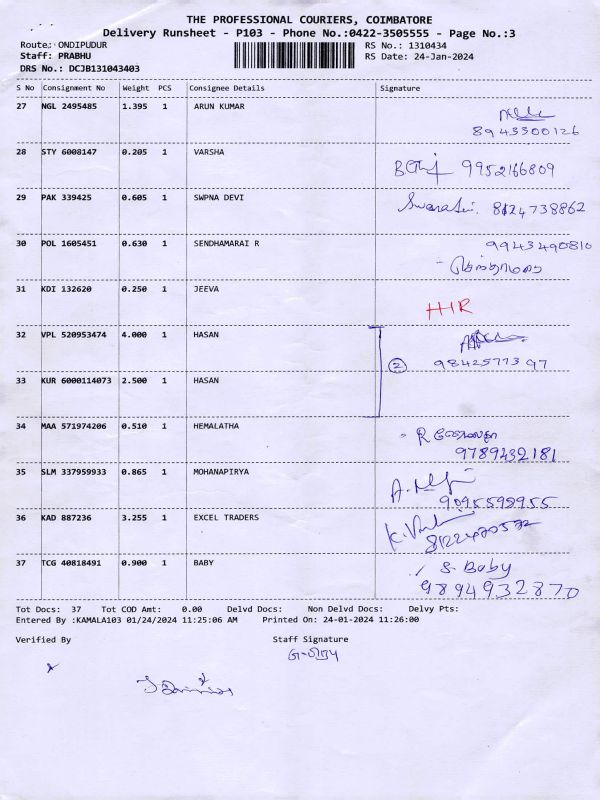 THE PROFESSIONAL COURIERS, COIMBATORE
Delivery Runsheet - P103 - Phone No.:0422-3505555 - Page No.:3
Route.: ONDIPUDUR RS No.: 1310434
Staff: PRABHU RS Date: 24-Jan-2024
DRS No.: DCJB131043403
S No Consignment No Weight PCS Consignee Details Signature
27 NGL 2495485 1.395 1 ARUN KUMAR
8943300126
28 STY 6008147 0.205 1 VARSHA 9952166809
29 PAK 339425 0.605 1 SWPNA DEVI 8124738862
30 POL 1605451 0.630 1 SENDHAMARAI R 9943490810
செந்தாமரை
31 KDI 132620 0.250 1 JEEVA
32 VPL 520953474 4.000 1 HASAN
2 9842577397
33 KUR 6000114073 2.500 1 HASAN
34 MAA 571974206 0.510 1 HEMALATHA R ஹேமலதா
9789432181
35 SLM 337959933 0.865 1 MOHANAPIRYA
9095599955
36 KAD 887236 3.255 1 EXCEL TRADERS
8122470572
37 TCG 40818491 0.900 1 BABY S. Baby
9894932870
Tot Docs: 37 Tot COD Amt: 0.00 Delvd Docs: Non Delvd Docs: Delvy Pts:
Entered By :KAMALA103 01/24/2024 11:25:06 AM Printed On: 24-01-2024 11:26:00
Verified By Staff Signature